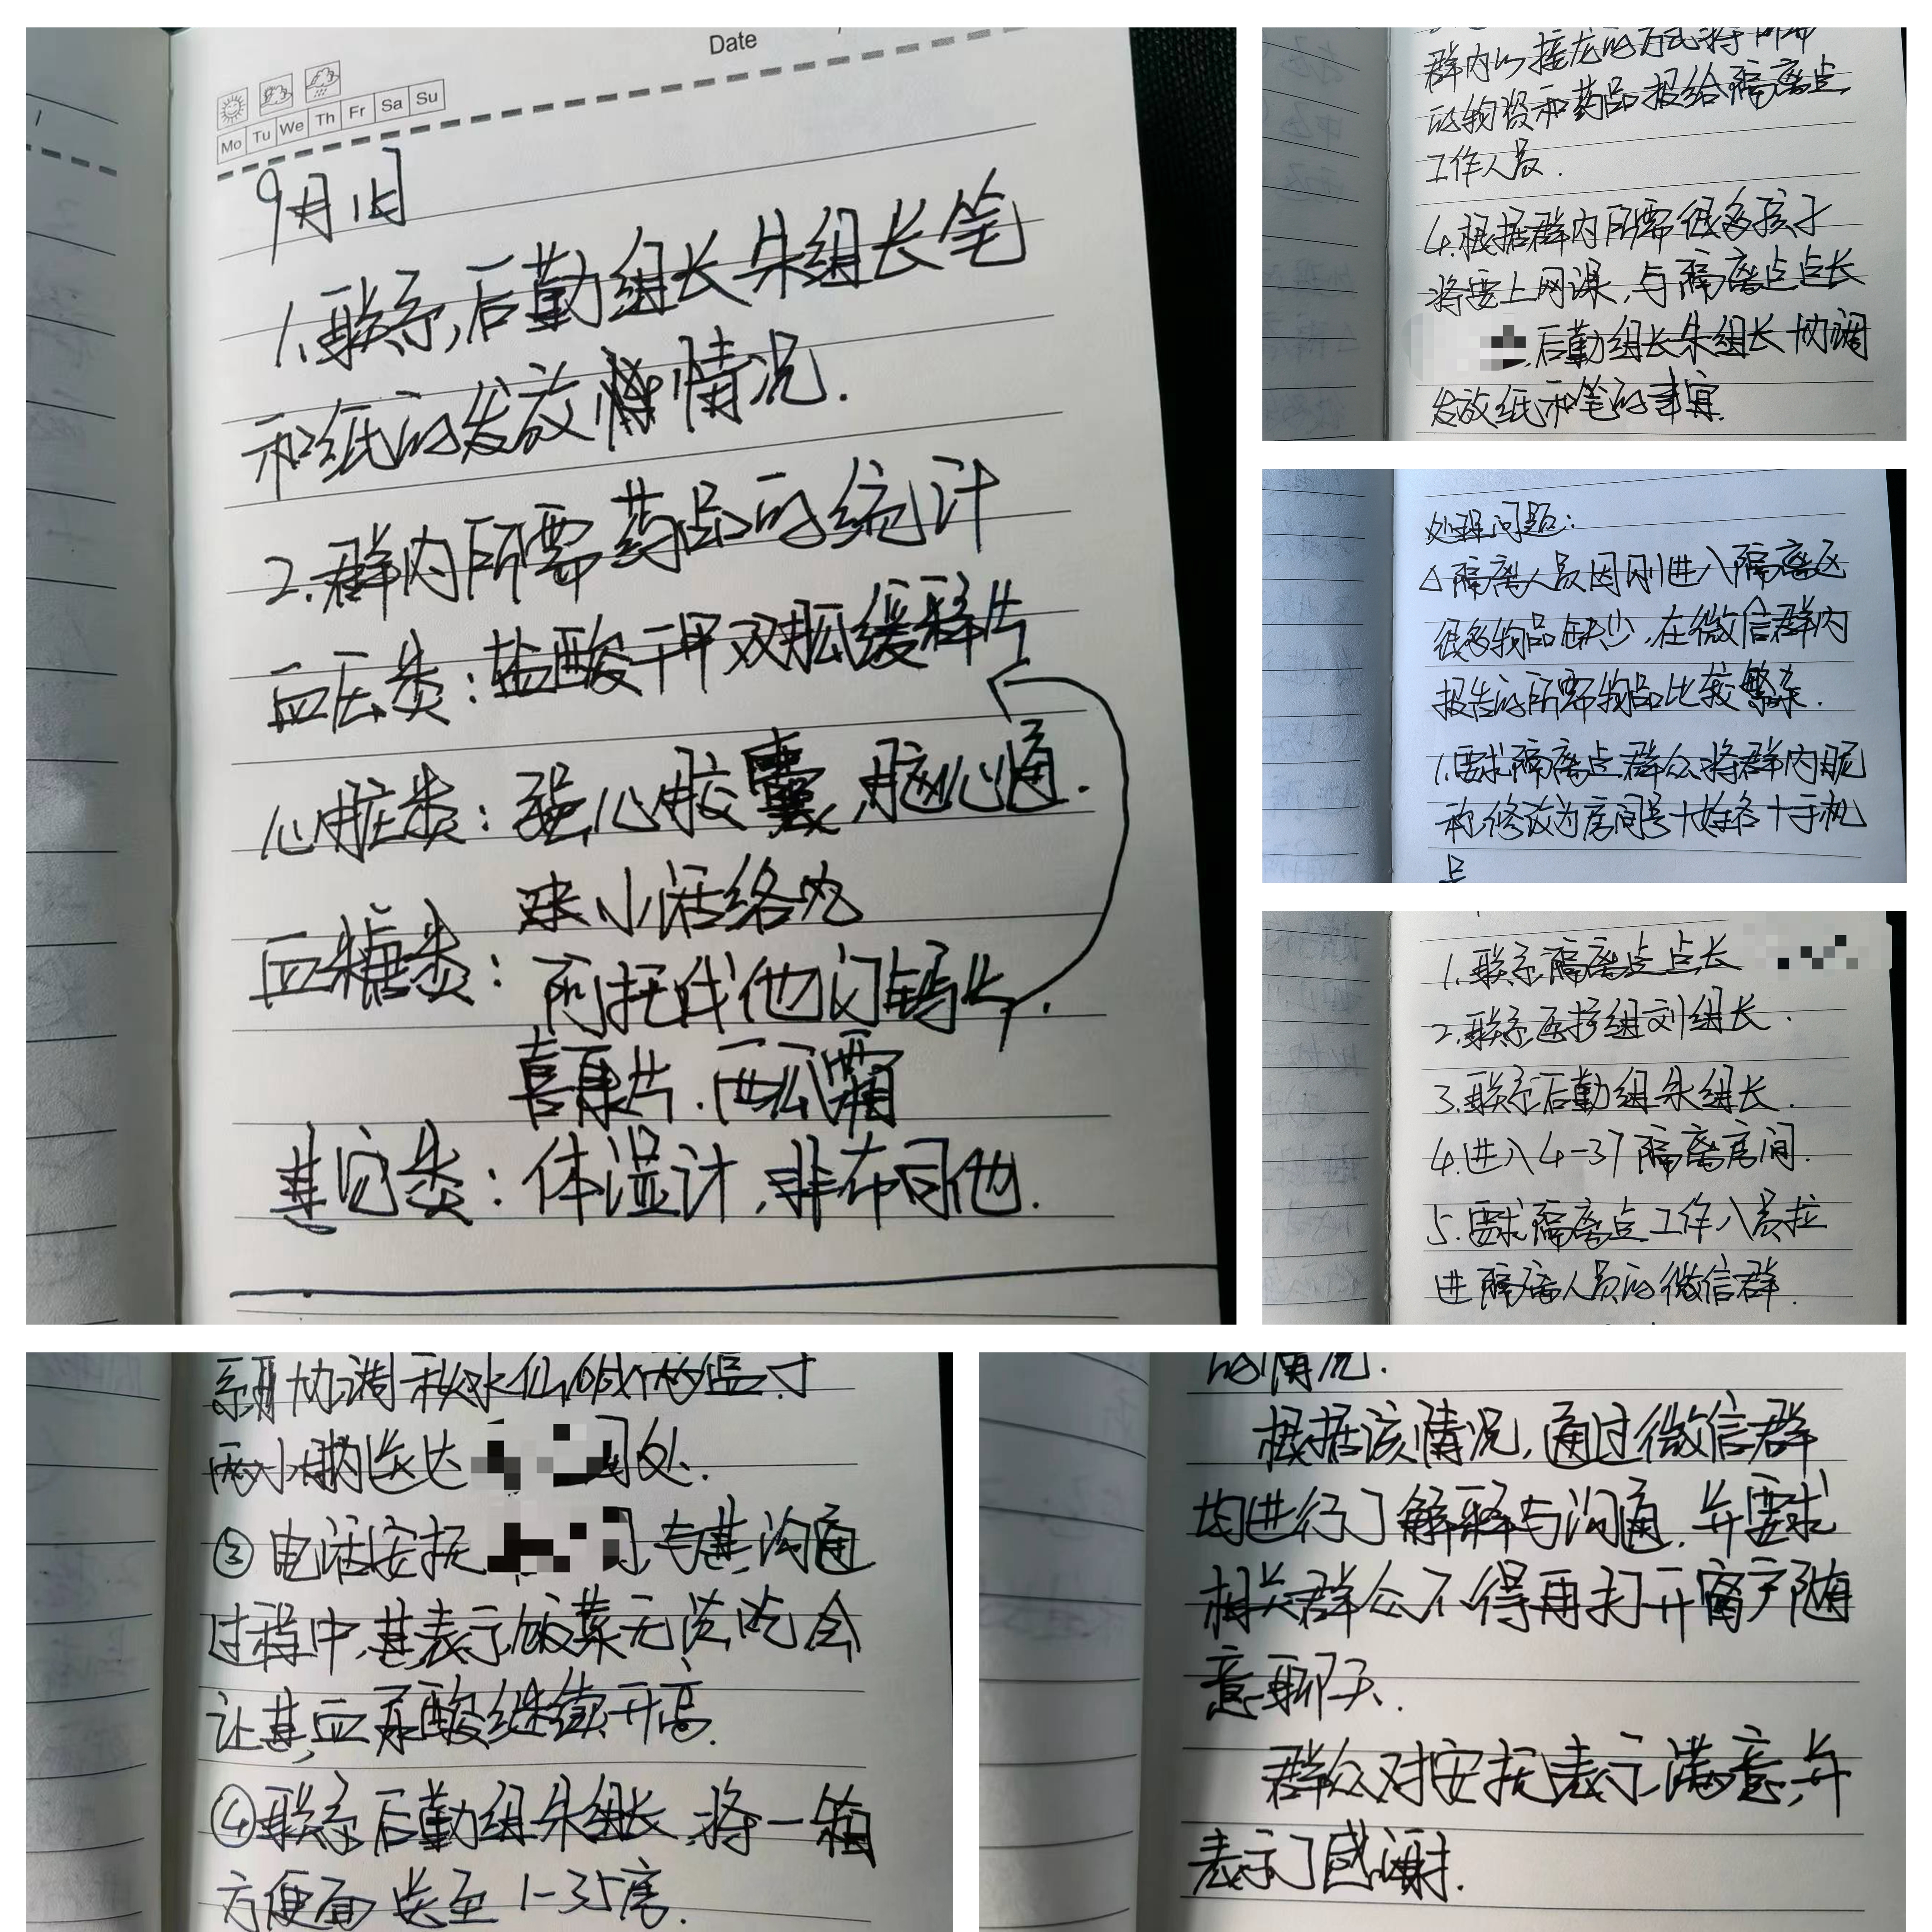 Date
Mo Tu We Th Fr Sa Su
9月1日
1.联系后勤组长朱组长笔
和纸的发放情况.
2.群内所需药品的统计
血压类:盐酸二甲双胍缓释片
心脏类:强心胶囊,脑心通.
小活络丸
血糖类:阿托伐他汀钙片.
喜康片.西瓜霜
其它类:体温计,非布司他.
群内以接龙的方式将所需
的物资和药品报给隔离点
工作人员.
4.根据群内所需很多孩子
将要上网课,与隔离点点长
,后勤组长朱组长协调
发放纸和笔的事宜.
处理问题:
隔离人员因刚进入隔离区
很多物品缺少,在微信群内
报告的所需物品比较繁杂.
1.要求隔离点群众将群内昵
称修改为房间号+姓名+手机
号
1.联系隔离点点长
2.联系医护组刘组长.
3.联系后勤组朱组长.
4.进入4-37隔离房间.
5.要求隔离点工作人员拉
进隔离人员的微信群.
协调秋水仙碱两盒.于
两小时内送达 处.
③电话安抚 ,与其沟通
过程中,其表示饭菜无法吃会
让其血尿酸继续升高.
④联系后勤组朱组长,将一箱
方便面送至1-35房.
的情况.
根据该情况,通过微信群
均进行了解释与沟通.并要求
相关群众不得再打开窗户随
意聊天.
群众对安抚表示满意,并
表示了感谢.